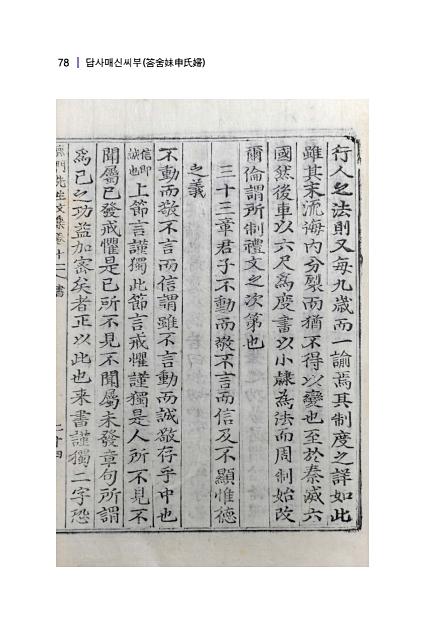 78 | 답사매신씨부(答舍妹申氏婦)
行人之法則又每九歲而一諭焉其制度之詳如此
雖其末流海內分裂而猶不得以變也至於秦滅六
國然後車以六尺爲度書以小隸為法而周制始改
爾倫謂所制禮文之次第也
三十三章君子不動而敬不言而信及不顯惟德
之義
不動而敬不言而信謂雖不言動而誠敬存乎中也
信即誠也上節言謹獨此節言戒懼謹獨是人所不見不
聞屬已發戒懼是已所不見不聞屬未發章句所謂
爲己之功益加密矣者正以此也來書謹獨二字恐
門先生文集卷十 書 二十四